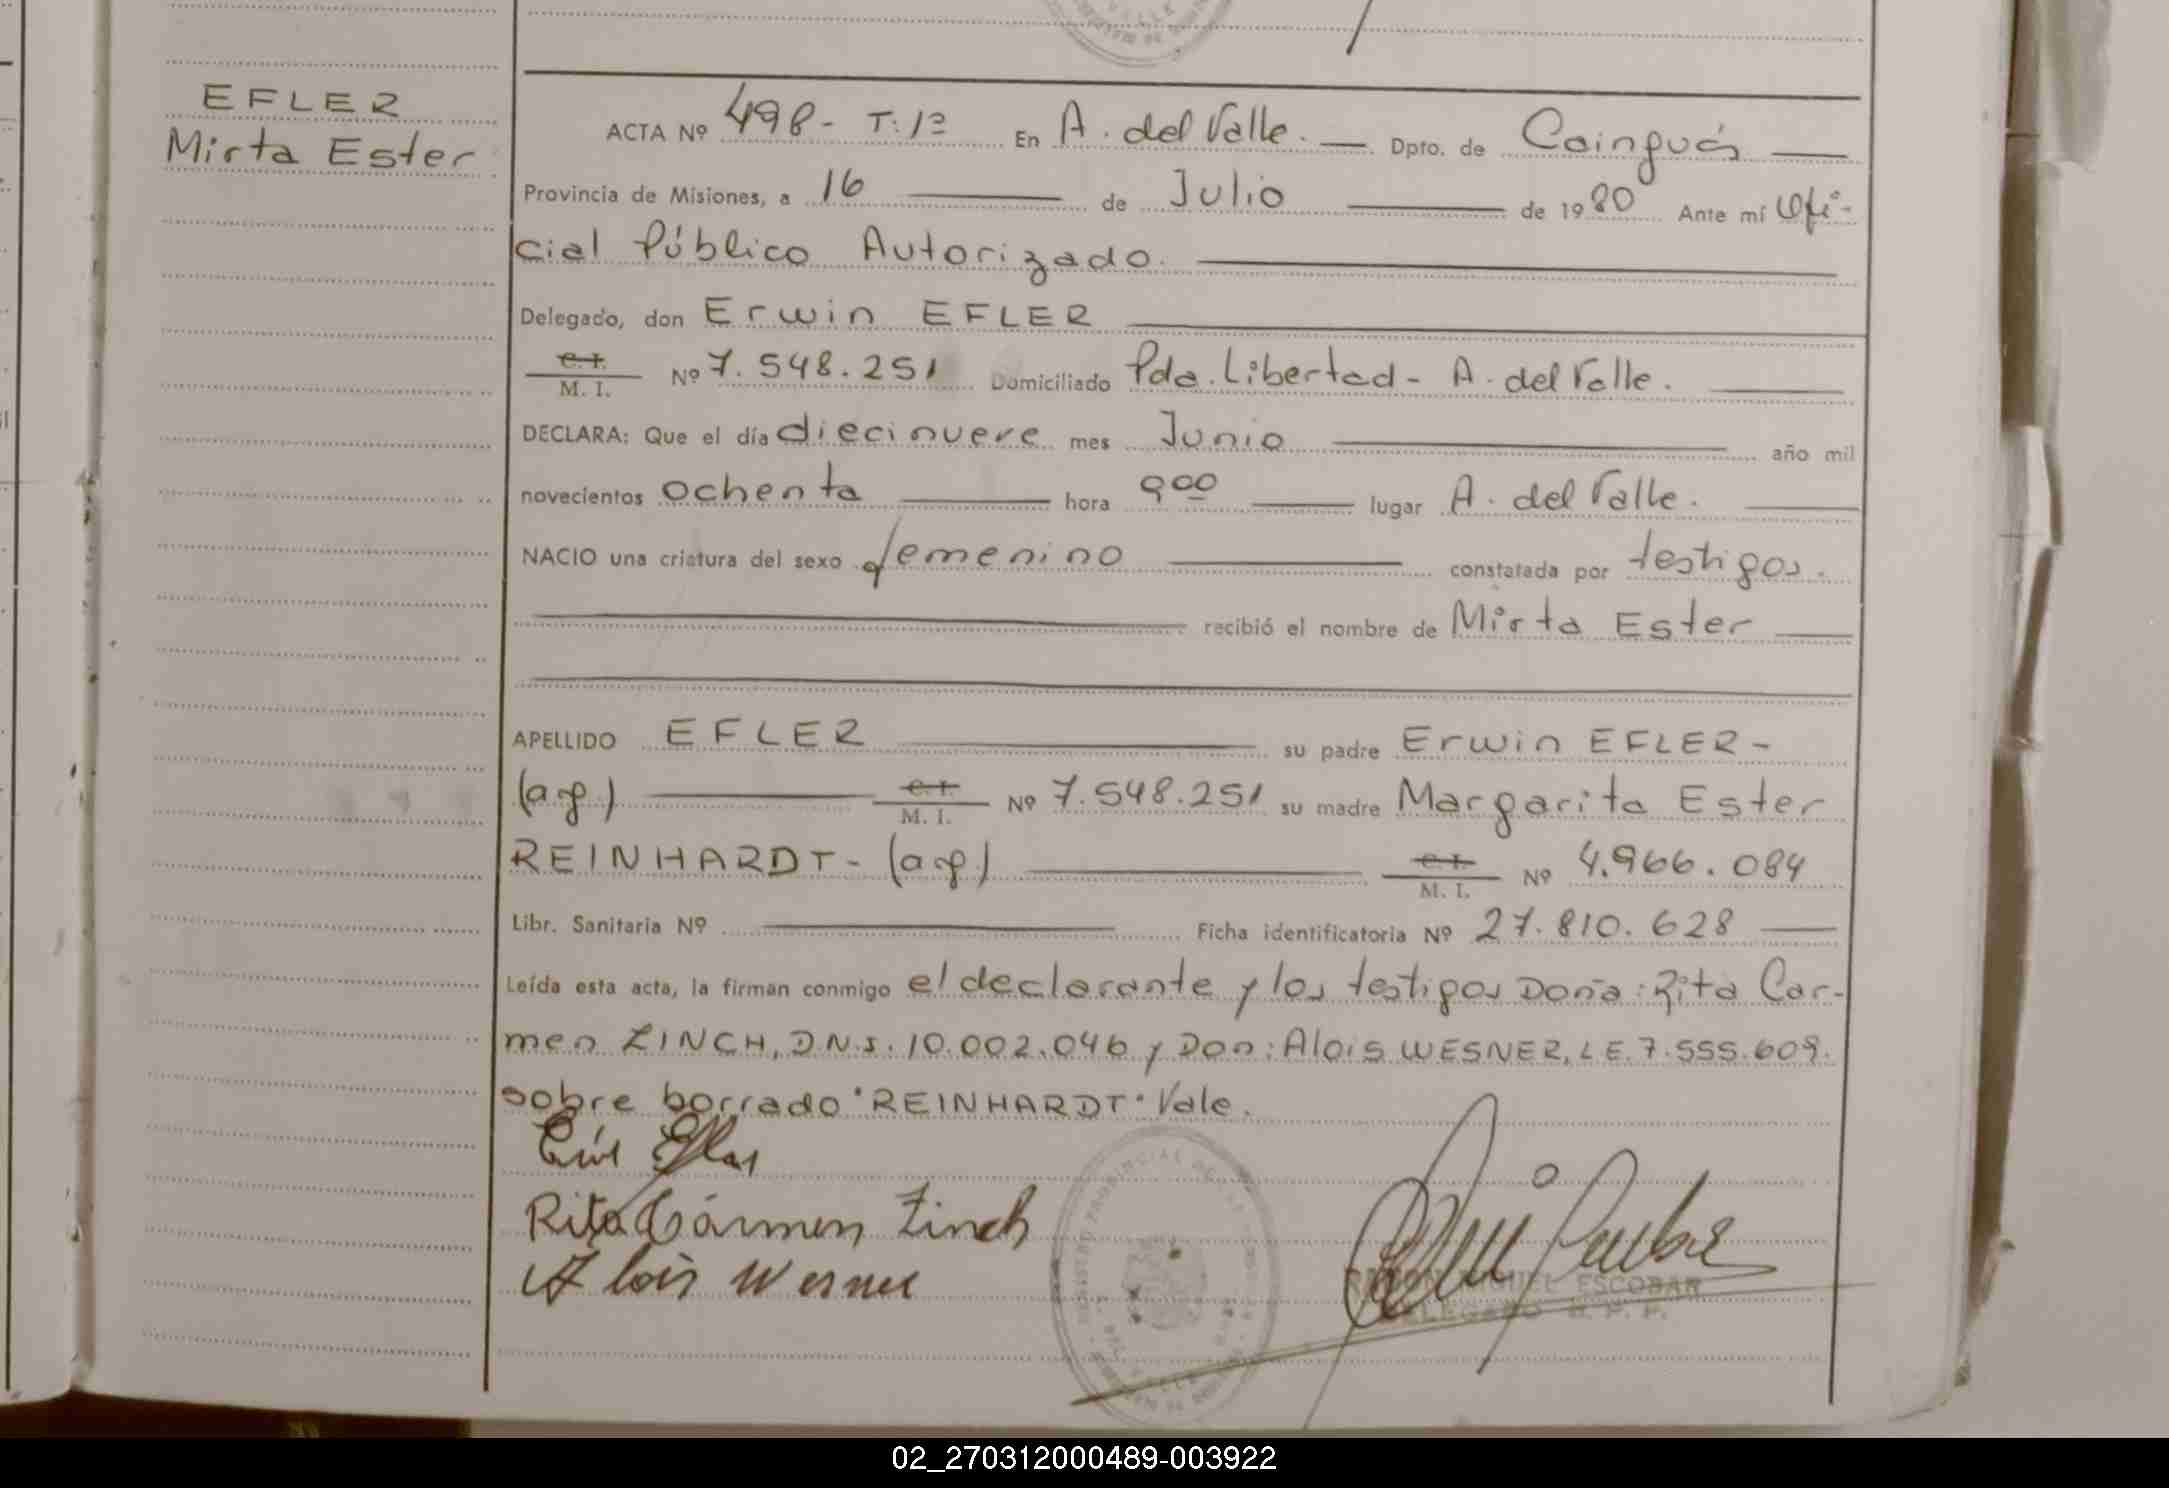 EFLER
Mirta Ester
ACTA Nº 498- T: 1º En A. del Valle. Dpto. de Cainguás
Provincia de Misiones, a 16 de Julio de 1980 Ante mí Ofi-
cial Público Autorizado.
Delegado, don Erwin EFLER
C. I. M. I. Nº 7.548.251 Domiciliado Pda. Libertad - A. del Valle.
DECLARA: Que el día diecinueve mes Junio año mil
novecientos ochenta hora 9⁰⁰ lugar A. del Valle.
NACIO una criatura del sexo femenino constatada por testigos.
recibió el nombre de Mirta Ester
APELLIDO EFLER su padre Erwin EFLER-
(arg.) C. I. M. I. Nº 7.548.251 su madre Margarita Ester
REINHARDT- (arg.) C. I. M. I. Nº 4.966.084
Libr. Sanitaria Nº Ficha identificatoria Nº 27.810.628
Leída esta acta, la firman conmigo el declarante y los testigos Doña: Rita Car-
men ZINCH, D.N.I. 10.002.046 y Don: Alois WESNER, L E. 7.555.609.
sobre borrado "REINHARDT" Vale.
Rita Cármen Zinch
Alois Wesner
RAMON MIGUEL ESCOBAR
DELEGADO R. P. P.
02_270312000489-003922